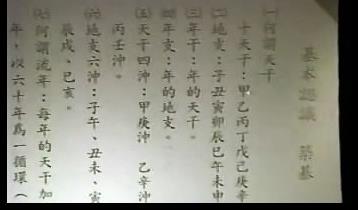 基本認識 築基
㈠何謂天干
十天干：甲乙丙丁戊己庚辛
㈡地支：子丑寅卯辰巳午未申
㈢年干：年的天干。
㈣年支：年的地支。
㈤天干四沖：甲庚沖 乙辛沖
丙壬沖。
㈥地支六沖：子午、丑未、寅
辰戌、巳亥。
㈦何謂流年：每年的天干加
年，以六十年為一循環（